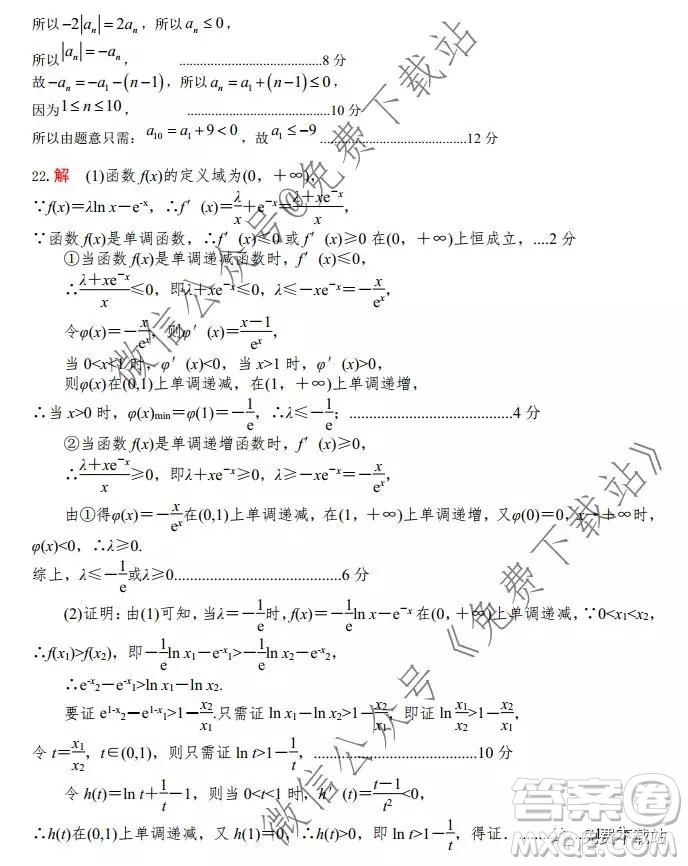 所以-2|aₙ|=2aₙ，所以aₙ≤0，
所以|aₙ|=-aₙ，..........................................8 分
故-aₙ=-a₁-(n-1)，所以aₙ=a₁+(n-1)≤0，
因为1≤n≤10，..........................................10 分
所以由题意只需：a₁₀=a₁+9<0，故a₁≤-9..........................................12 分
22.解 (1)函数 f(x)的定义域为(0，+∞)，
∵f(x)=λln x-e⁻ˣ，∴f′(x)=λ/x+e⁻ˣ=(λ+xe⁻ˣ)/x，
∵函数 f(x)是单调函数，∴f′(x)≤0 或 f′(x)≥0 在(0，+∞)上恒成立，....2 分
①当函数 f(x)是单调递减函数时，f′(x)≤0，
∴(λ+xe⁻ˣ)/x≤0，即λ+xe⁻ˣ≤0，λ≤-xe⁻ˣ=-x/eˣ，
令φ(x)=-x/eˣ，则φ′(x)=(x-1)/eˣ，
当 0<x<1 时，φ′(x)<0，当 x>1 时，φ′(x)>0，
则φ(x)在(0,1)上单调递减，在(1，+∞)上单调递增，
∴当 x>0 时，φ(x)min=φ(1)=-1/e，∴λ≤-1/e；..........................................4 分
②当函数 f(x)是单调递增函数时，f′(x)≥0，
∴(λ+xe⁻ˣ)/x≥0，即λ+xe⁻ˣ≥0，λ≥-xe⁻ˣ=-x/eˣ，
由①得φ(x)=-x/eˣ在(0,1)上单调递减，在(1，+∞)上单调递增，又φ(0)=0，x→+∞时，
φ(x)<0，∴λ≥0.
综上，λ≤-1/e或λ≥0..........................................6 分
(2)证明：由(1)可知，当λ=-1/e时，f(x)=-1/e ln x-e⁻ˣ在(0，+∞)上单调递减，∵0<x₁<x₂，
∴f(x₁)>f(x₂)，即-1/e ln x₁-e^-x₁>-1/e ln x₂-e^-x₂，
∴e^-x₂-e^-x₁>ln x₁-ln x₂.
要证 e^1-x₂-e^1-x₁>1-x₂/x₁.只需证 ln x₁-ln x₂>1-x₂/x₁，即证 ln x₁/x₂>1-x₂/x₁，
令 t=x₁/x₂，t∈(0,1)，则只需证 ln t>1-1/t，..........................................10 分
令 h(t)=ln t+1/t-1，则当 0<t<1 时，h′(t)=(t-1)/t²<0，
∴h(t)在(0,1)上单调递减，又 h(1)=0，∴h(t)>0，即 ln t>1-1/t，得证.
微信公众号@免费下载站
微信公众号《免费下载站》
答案圈
免费下载站